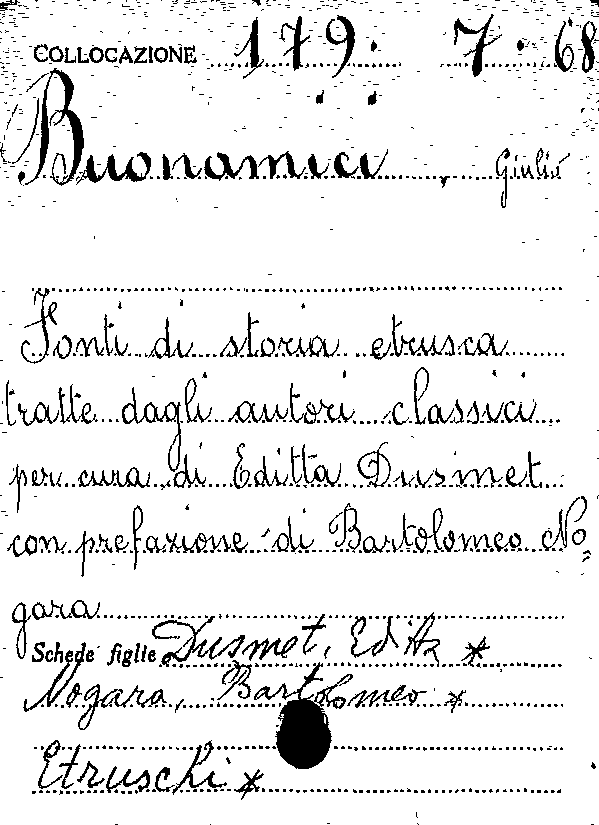 COLLOCAZIONE 179. 7. 68
Buonamici, Giulio
Fonti di storia etrusca
tratte dagli autori classici
per cura di Editta Dusmet
con prefazione di Bartolomeo No=
gara
Schede figlie Dusmet, Editta *
Nogara, Bartolomeo *
Etruschi *